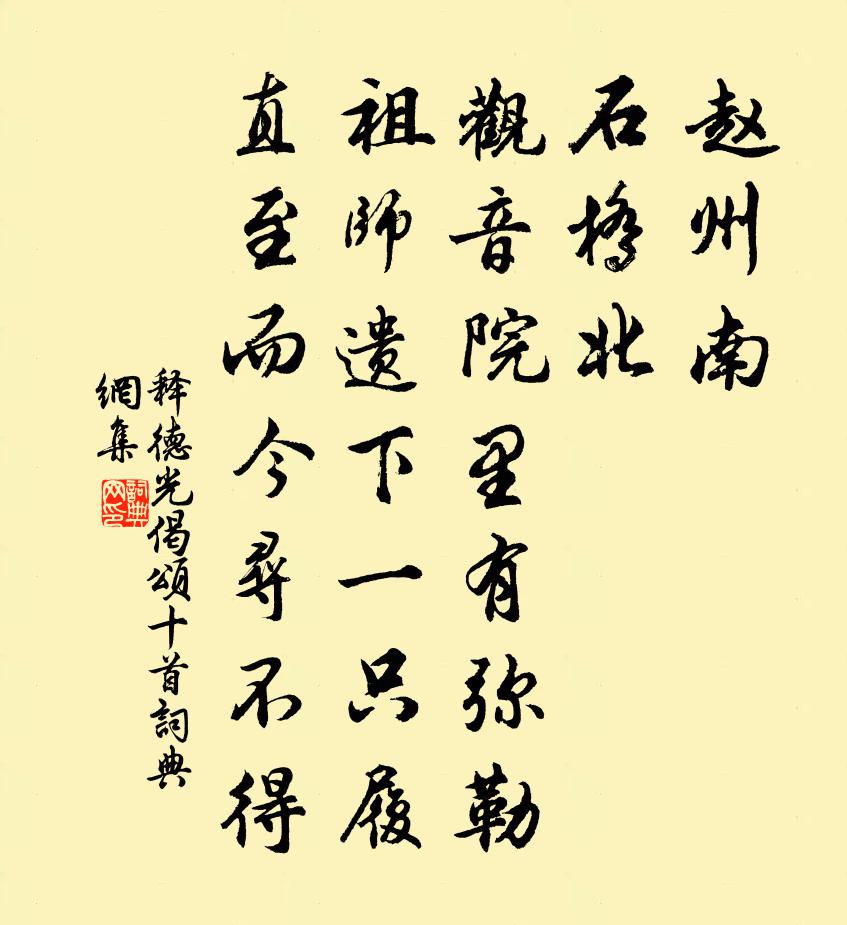 赵州南
石橋北
觀音院里有弥勒
祖師遗下一只履
直至而今尋不得
释德光偈頌十首詞典
網集
詞典
网印